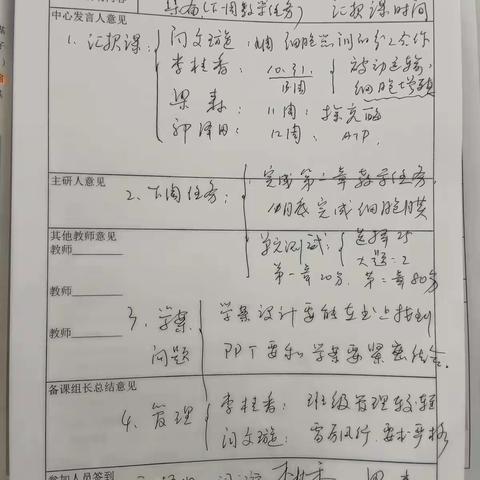 布局(下周教学任务)  汇报课时间
中心发言人意见
1. 汇报课:
闫文璇: 细胞器间的分工合作
李桂香: 10.31. 被动运输,
细胞增殖
梁森: 11周: 探究酶
郭泽田: 12周、 ATP.
主研人意见
2. 下周任务:
完成第二章教学任务.
月底完成细胞膜
其他教师意见
单元测试: 选择25
教师
大题=2
第一章20分, 第二章80分
教师
3. 学案问题
学案设计要能在书上找到
教师
PPT要和学案要紧密结合.
备课组长总结意见
4. 管理
李桂香: 班级管理较轻
闫文璇: 雷厉风行. 要求严格
参加人员签到
梁森